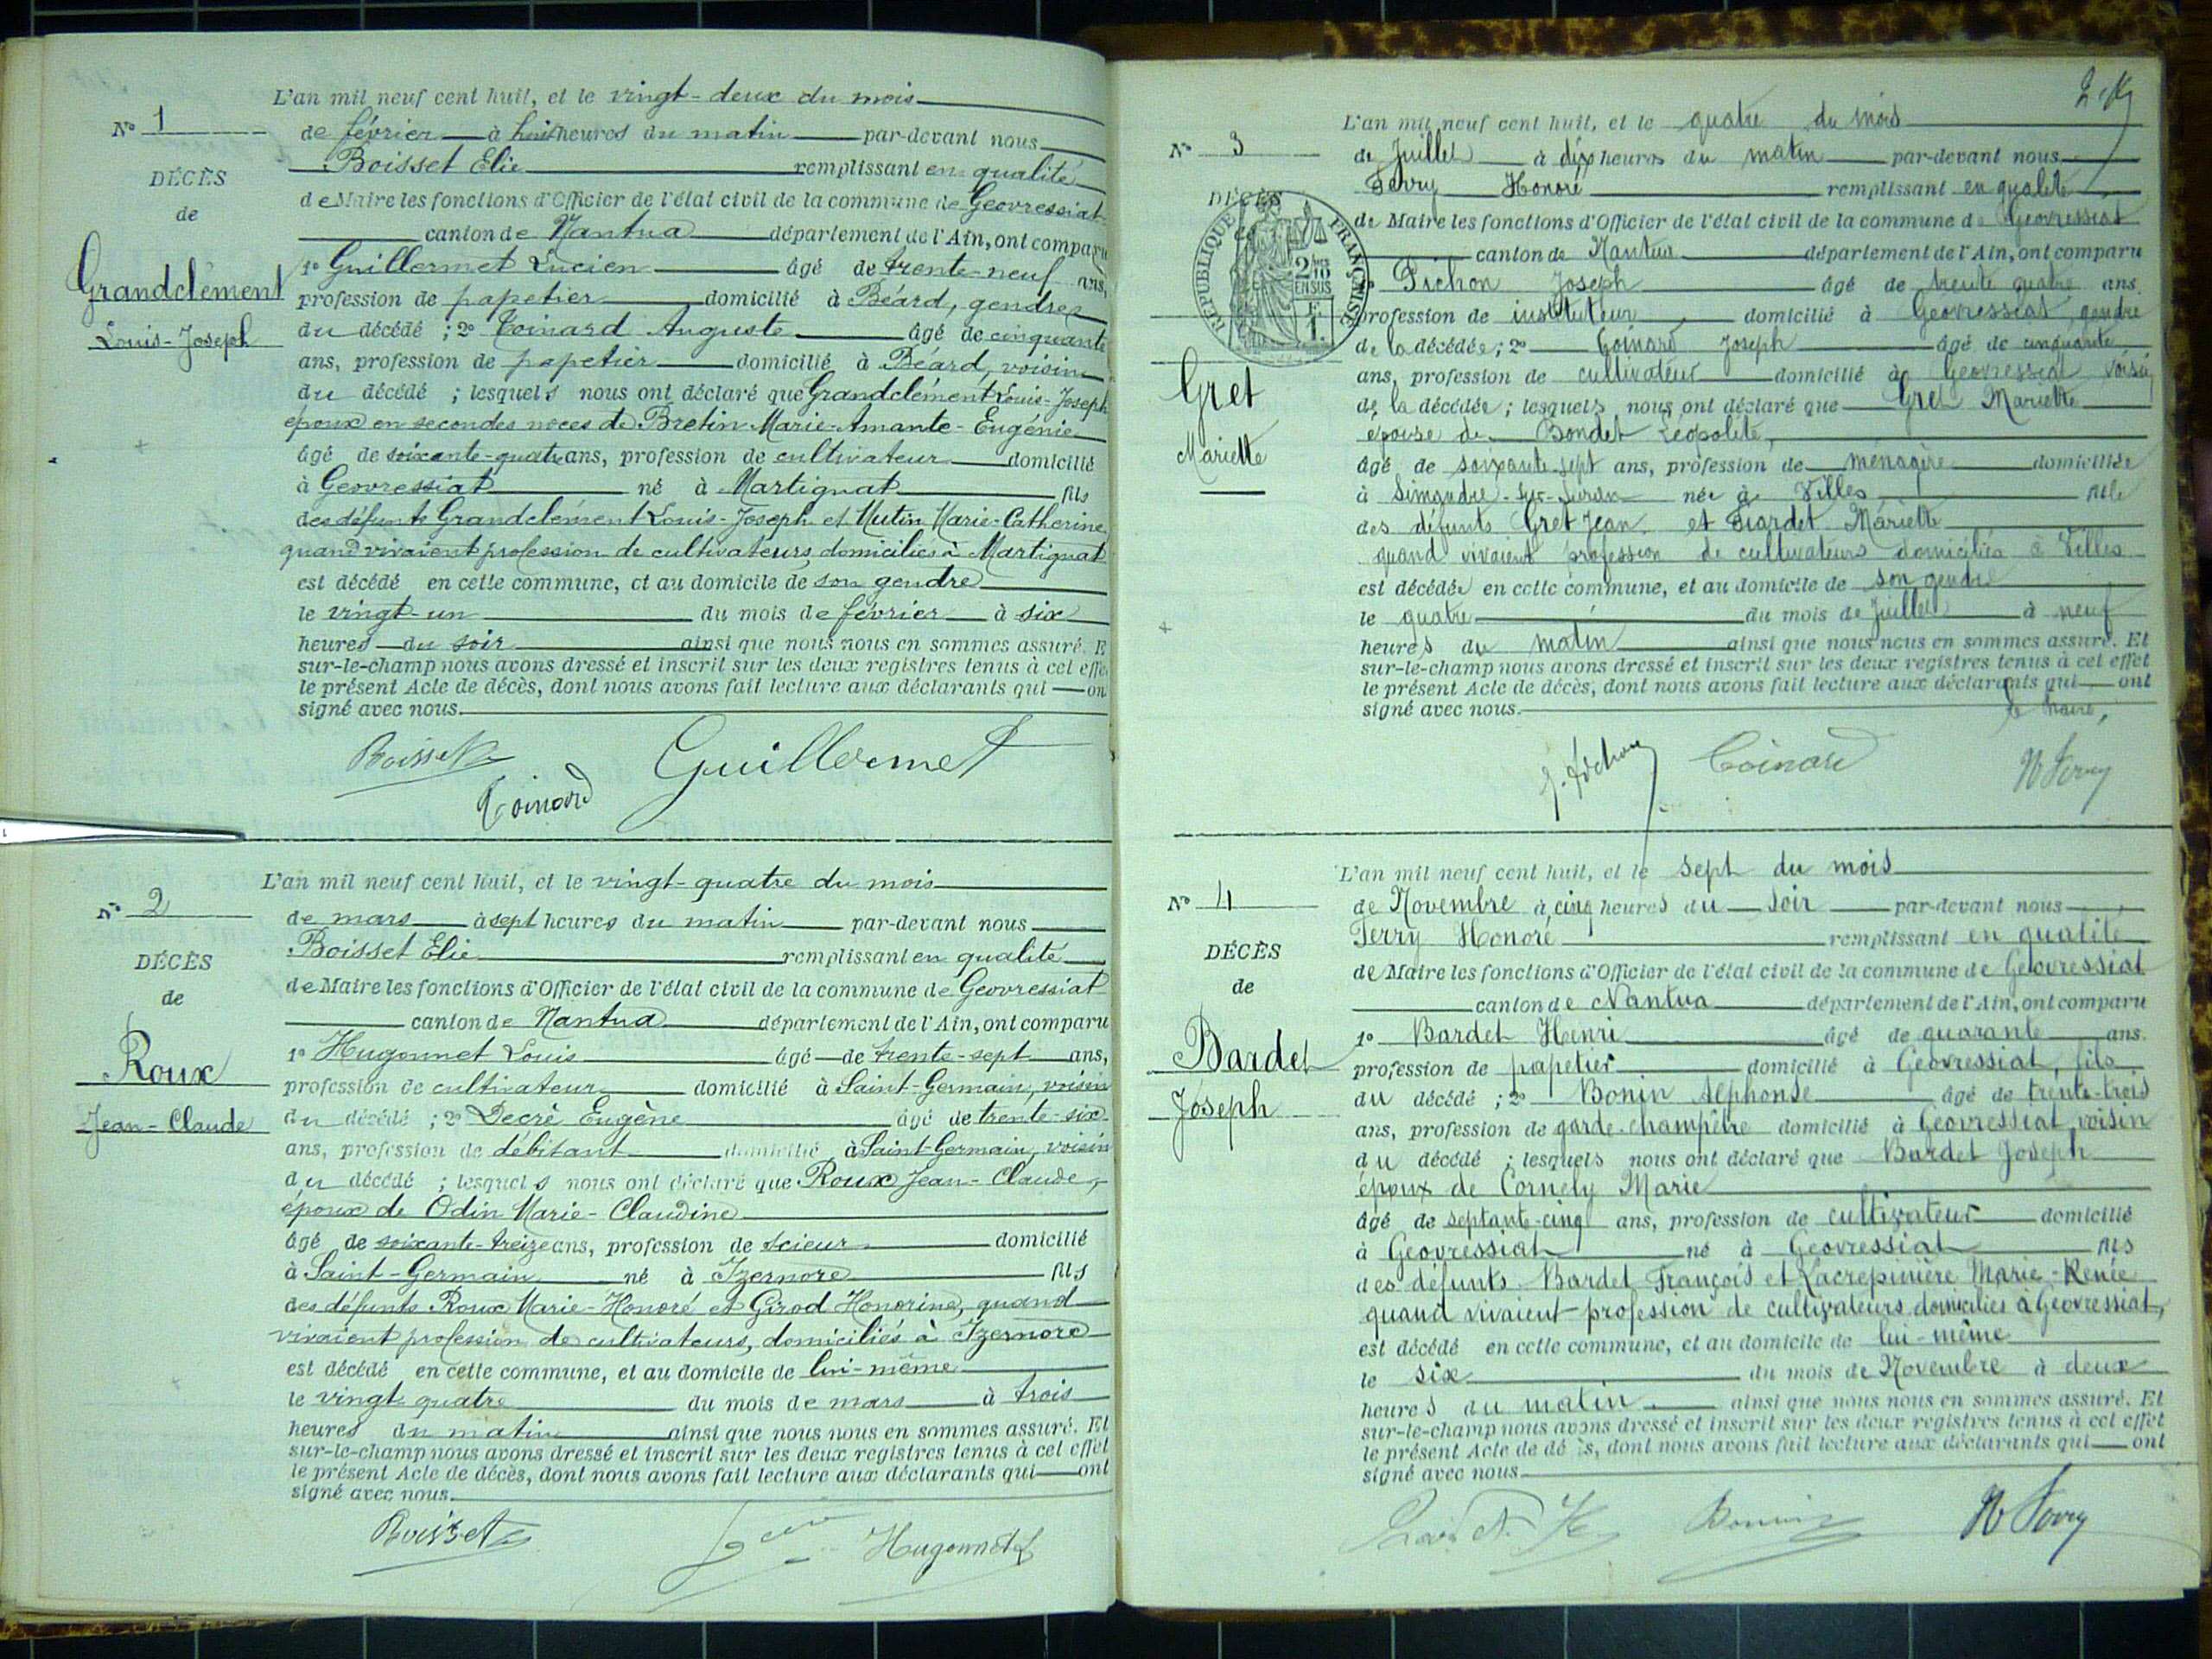 L'an mil neuf cent huit, et le vingt-deux du mois
N° 1
de février à huit heures du matin par-devant nous
Boisset Elie remplissant en qualité
DÉCÈS
de Maire les fonctions d'Officier de l'état civil de la commune de Geovressiat
de
canton de Nantua département de l'Ain, ont comparu
Grandclément
1° Guillermet Lucien âgé de trente-neuf ans,
profession de papetier domicilié à Béard, gendre
Louis-Joseph
du décédé ; 2° Coinard Auguste âgé de cinquante
ans, profession de papetier domicilié à Béard, voisin
du décédé ; lesquels nous ont déclaré que Grandclément Louis-Joseph
époux en secondes noces de Bretin Marie-Amante-Eugénie
âgé de soixante-quatre ans, profession de cultivateur domicilié
à Geovressiat né à Martignat fils
des défunts Grandclément Louis-Joseph et Mutin Marie-Catherine
quand vivaient profession de cultivateurs, domiciliés à Martignat
est décédé en cette commune, et au domicile de son gendre
le vingt-un du mois de février à six
heures du soir ainsi que nous nous en sommes assuré. E
sur-le-champ nous avons dressé et inscrit sur les deux registres tenus à cet effe
le présent Acte de décès, dont nous avons fait lecture aux déclarants qui on
signé avec nous.
Boisset Guillermet
Coinard
L'an mil neuf cent huit, et le vingt-quatre du mois
N° 2
de mars à sept heures du matin par-devant nous
Boisset Elie remplissant en qualité
DÉCÈS
de Maire les fonctions d'Officier de l'état civil de la commune de Geovressiat
de
canton de Nantua département de l'Ain, ont comparu
1° Hugonnet Louis âgé de trente-sept ans,
Roux
profession de cultivateur domicilié à Saint-Germain, voisin
Jean-Claude
du décédé ; 2° Decré Eugène âgé de trente-six
ans, profession de débitant domicilié à Saint-Germain, voisin
du décédé ; lesquels nous ont déclaré que Roux Jean-Claude,
époux de Odin Marie-Claudine
âgé de soixante-treize ans, profession de scieur domicilié
à Saint-Germain né à Izernore fils
des défunts Roux Marie-Honoré et Girod Honorine, quand
vivaient profession de cultivateurs, domiciliés à Izernore
est décédé en cette commune, et au domicile de lui-même
le vingt quatre du mois de mars à trois
heures du matin ainsi que nous nous en sommes assuré. Et
sur-le-champ nous avons dressé et inscrit sur les deux registres tenus à cet effet
le présent Acte de décès, dont nous avons fait lecture aux déclarants qui ont
signé avec nous.
Boisset Hugonnet
L'an mil neuf cent huit, et le quatre du mois
N° 3
de Juillet à dix heures du matin par-devant nous
Ferry Honoré remplissant en qualité
DÉCÈS
de Maire les fonctions d'Officier de l'état civil de la commune de Geovressiat
RÉPUBLIQUE FRANÇAISE
2/10 EN SUS
canton de Nantua département de l'Ain, ont comparu
Pichon Joseph âgé de trente quatre ans.
profession de instituteur domicilié à Géovressiat, gendre
de la décédée ; 2° Coinard Joseph âgé de cinquante
ans, profession de cultivateur domicilié à Geovressiat, voisin
Gret
de la décédée ; lesquels nous ont déclaré que Gret Mariette
épouse de Bondet Léopolite,
Mariette
âgé de soixante-sept ans, profession de ménagère domiciliée
à Simandre-sur-Suran née à Villes fille
des défunts Gret Jean et Mariette
quand vivaient profession de cultivateurs domiciliés à Villes
est décédée en cette commune, et au domicile de son gendre
le quatre du mois de Juillet à neuf
heures du matin ainsi que nous nous en sommes assuré. Et
sur-le-champ nous avons dressé et inscrit sur les deux registres tenus à cet effet
le présent Acte de décès, dont nous avons fait lecture aux déclarants qui ont
signé avec nous.
le Maire,
J. Pichon Coinard H Ferry
L'an mil neuf cent huit, et le sept du mois
N° 4
de Novembre à cinq heures du soir par-devant nous
Ferry Honoré remplissant en qualité
DÉCÈS
de Maire les fonctions d'Officier de l'état civil de la commune de Géovressiat
de
canton de Nantua département de l'Ain, ont comparu
1° Bardet Henri âgé de quarante ans.
Bardet
profession de papetier domicilié à Géovressiat, fils
Joseph
du décédé ; 2° Bonin Alphonse âgé de trente-trois
ans, profession de garde-champêtre domicilié à Géovressiat, voisin
du décédé ; lesquels nous ont déclaré que Bardet Joseph
époux de Cornely Marie
âgé de septante-cinq ans, profession de cultivateur domicilié
à Géovressiat né à Géovressiat fils
des défunts Bardet François et Lacrepinière Marie-Renée
quand vivaient profession de cultivateurs domiciliés à Géovressiat,
est décédé en cette commune, et au domicile de lui-même
le six du mois de Novembre à deux
heures du matin ainsi que nous nous en sommes assuré. Et
sur-le-champ nous avons dressé et inscrit sur les deux registres tenus à cet effet
le présent Acte de décès, dont nous avons fait lecture aux déclarants qui ont
signé avec nous
Bonin H Ferry